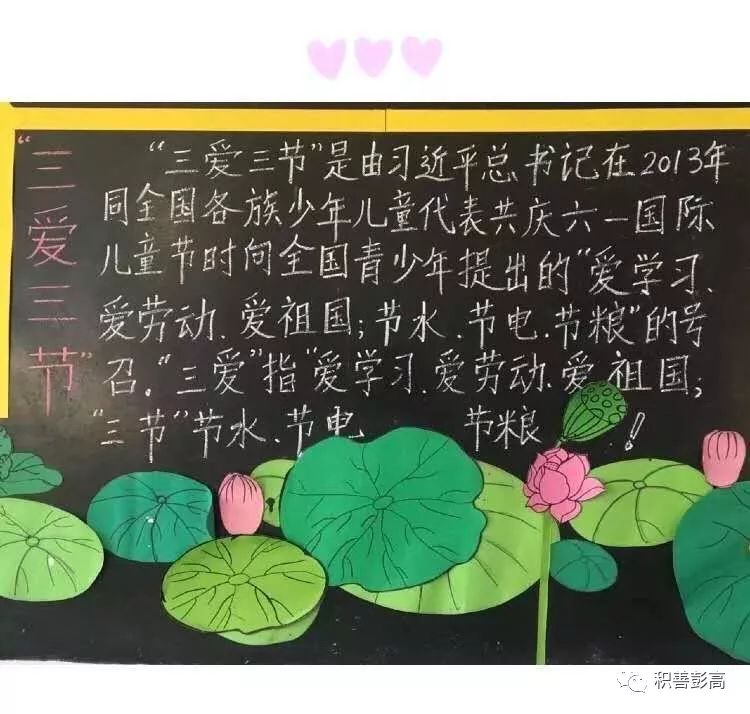 “三爱三节”
“三爱三节”是由习近平总书记在2013年
同全国各族少年儿童代表共庆六一国际
儿童节时向全国青少年提出的“爱学习、
爱劳动、爱祖国;节水、节电、节粮”的号
召。“三爱”指“爱学习、爱劳动、爱祖国;
“三节”节水、节电 节粮 !
积善彭高